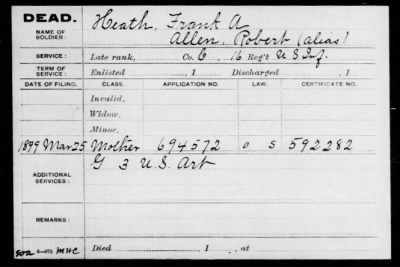 DEAD. Heath, Frank A
NAME OF SOLDIER: Allen, Robert (alias)
SERVICE: Late rank, Co. G, 16 Reg't U S Inf.
TERM OF SERVICE: Enlisted , 1 Discharged , 1
DATE OF FILING. CLASS. APPLICATION NO. LAW. CERTIFICATE NO.
Invalid,
Widow,
Minor,
1899 Mar 25 Mother 694572 O S 592282
ADDITIONAL SERVICES: G 3 U.S. Art
REMARKS:
Died , 1 , at